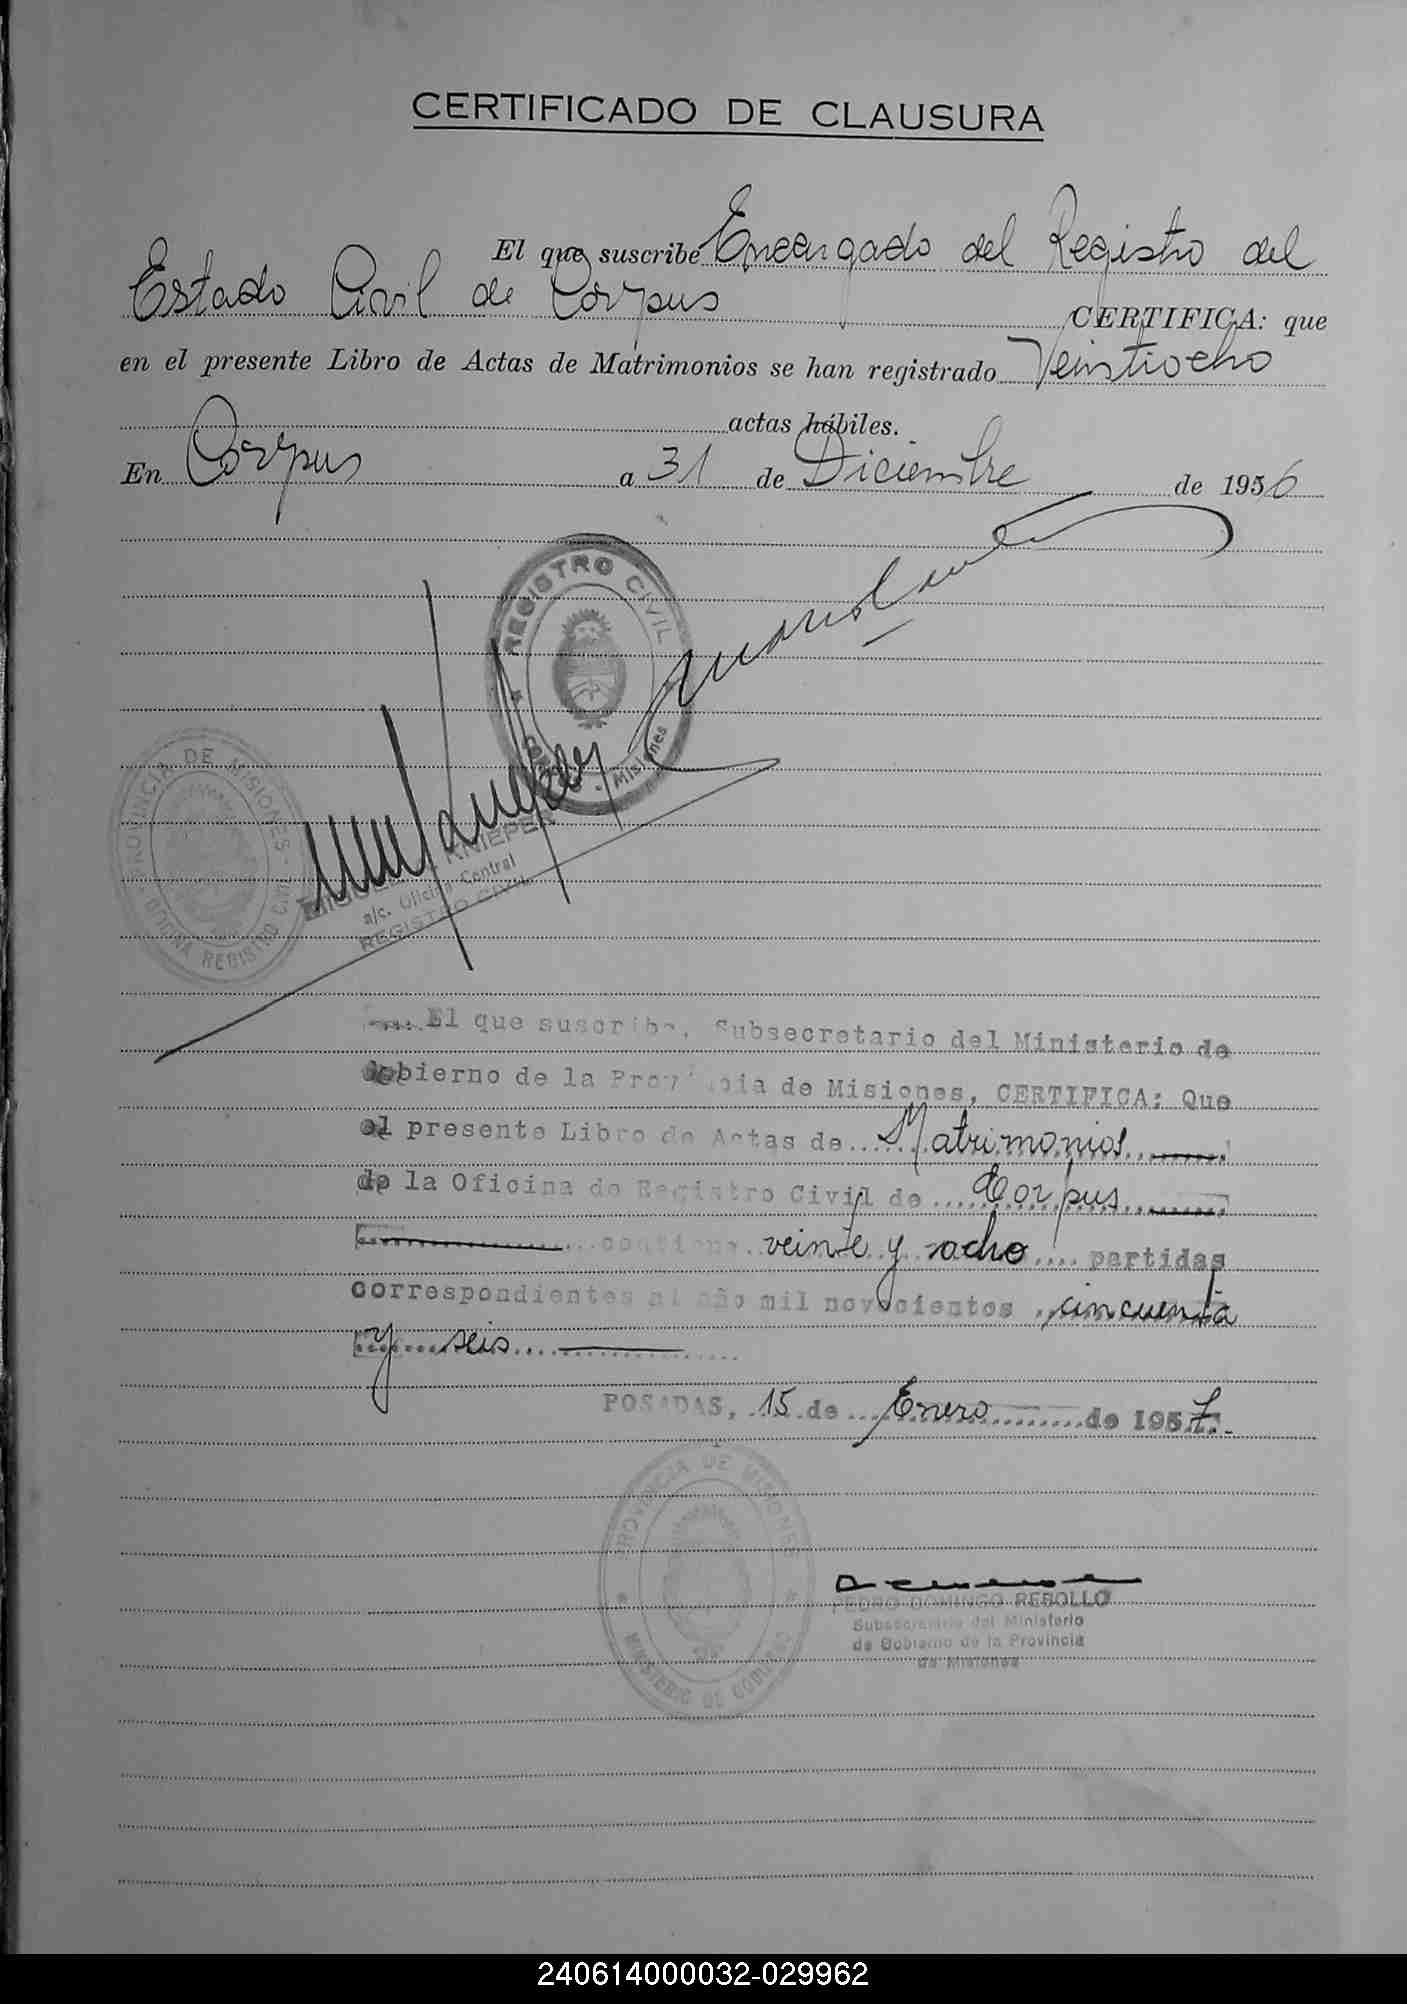 CERTIFICADO DE CLAUSURA
El que suscribe Encargado del Registro del
Estado Civil de Corpus CERTIFICA: que
en el presente Libro de Actas de Matrimonios se han registrado Veintiocho
actas hábiles.
En Corpus a 31 de Diciembre de 1956
REGISTRO CIVIL
Misiones
PROVINCIA DE MISIONES
OFICINA REGISTRO CIVIL
KNIEPER
a/c. Oficina Central
REGISTRO CIVIL
El que suscribe, Subsecretario del Ministerio de
Gobierno de la Provincia de Misiones, CERTIFICA: Que
el presente Libro de Actas de Matrimonios
de la Oficina de Registro Civil de Corpus
contiene veinte y ocho partidas
correspondientes al año mil novecientos cincuenta
y seis
POSADAS, 15 de Enero de 1957.
PROVINCIA DE MISIONES
MINISTERIO DE GOBIERNO
PEDRO DOMINGO REBOLLO
Subsecretario del Ministerio
de Gobierno de la Provincia
de Misiones
240614000032-029962